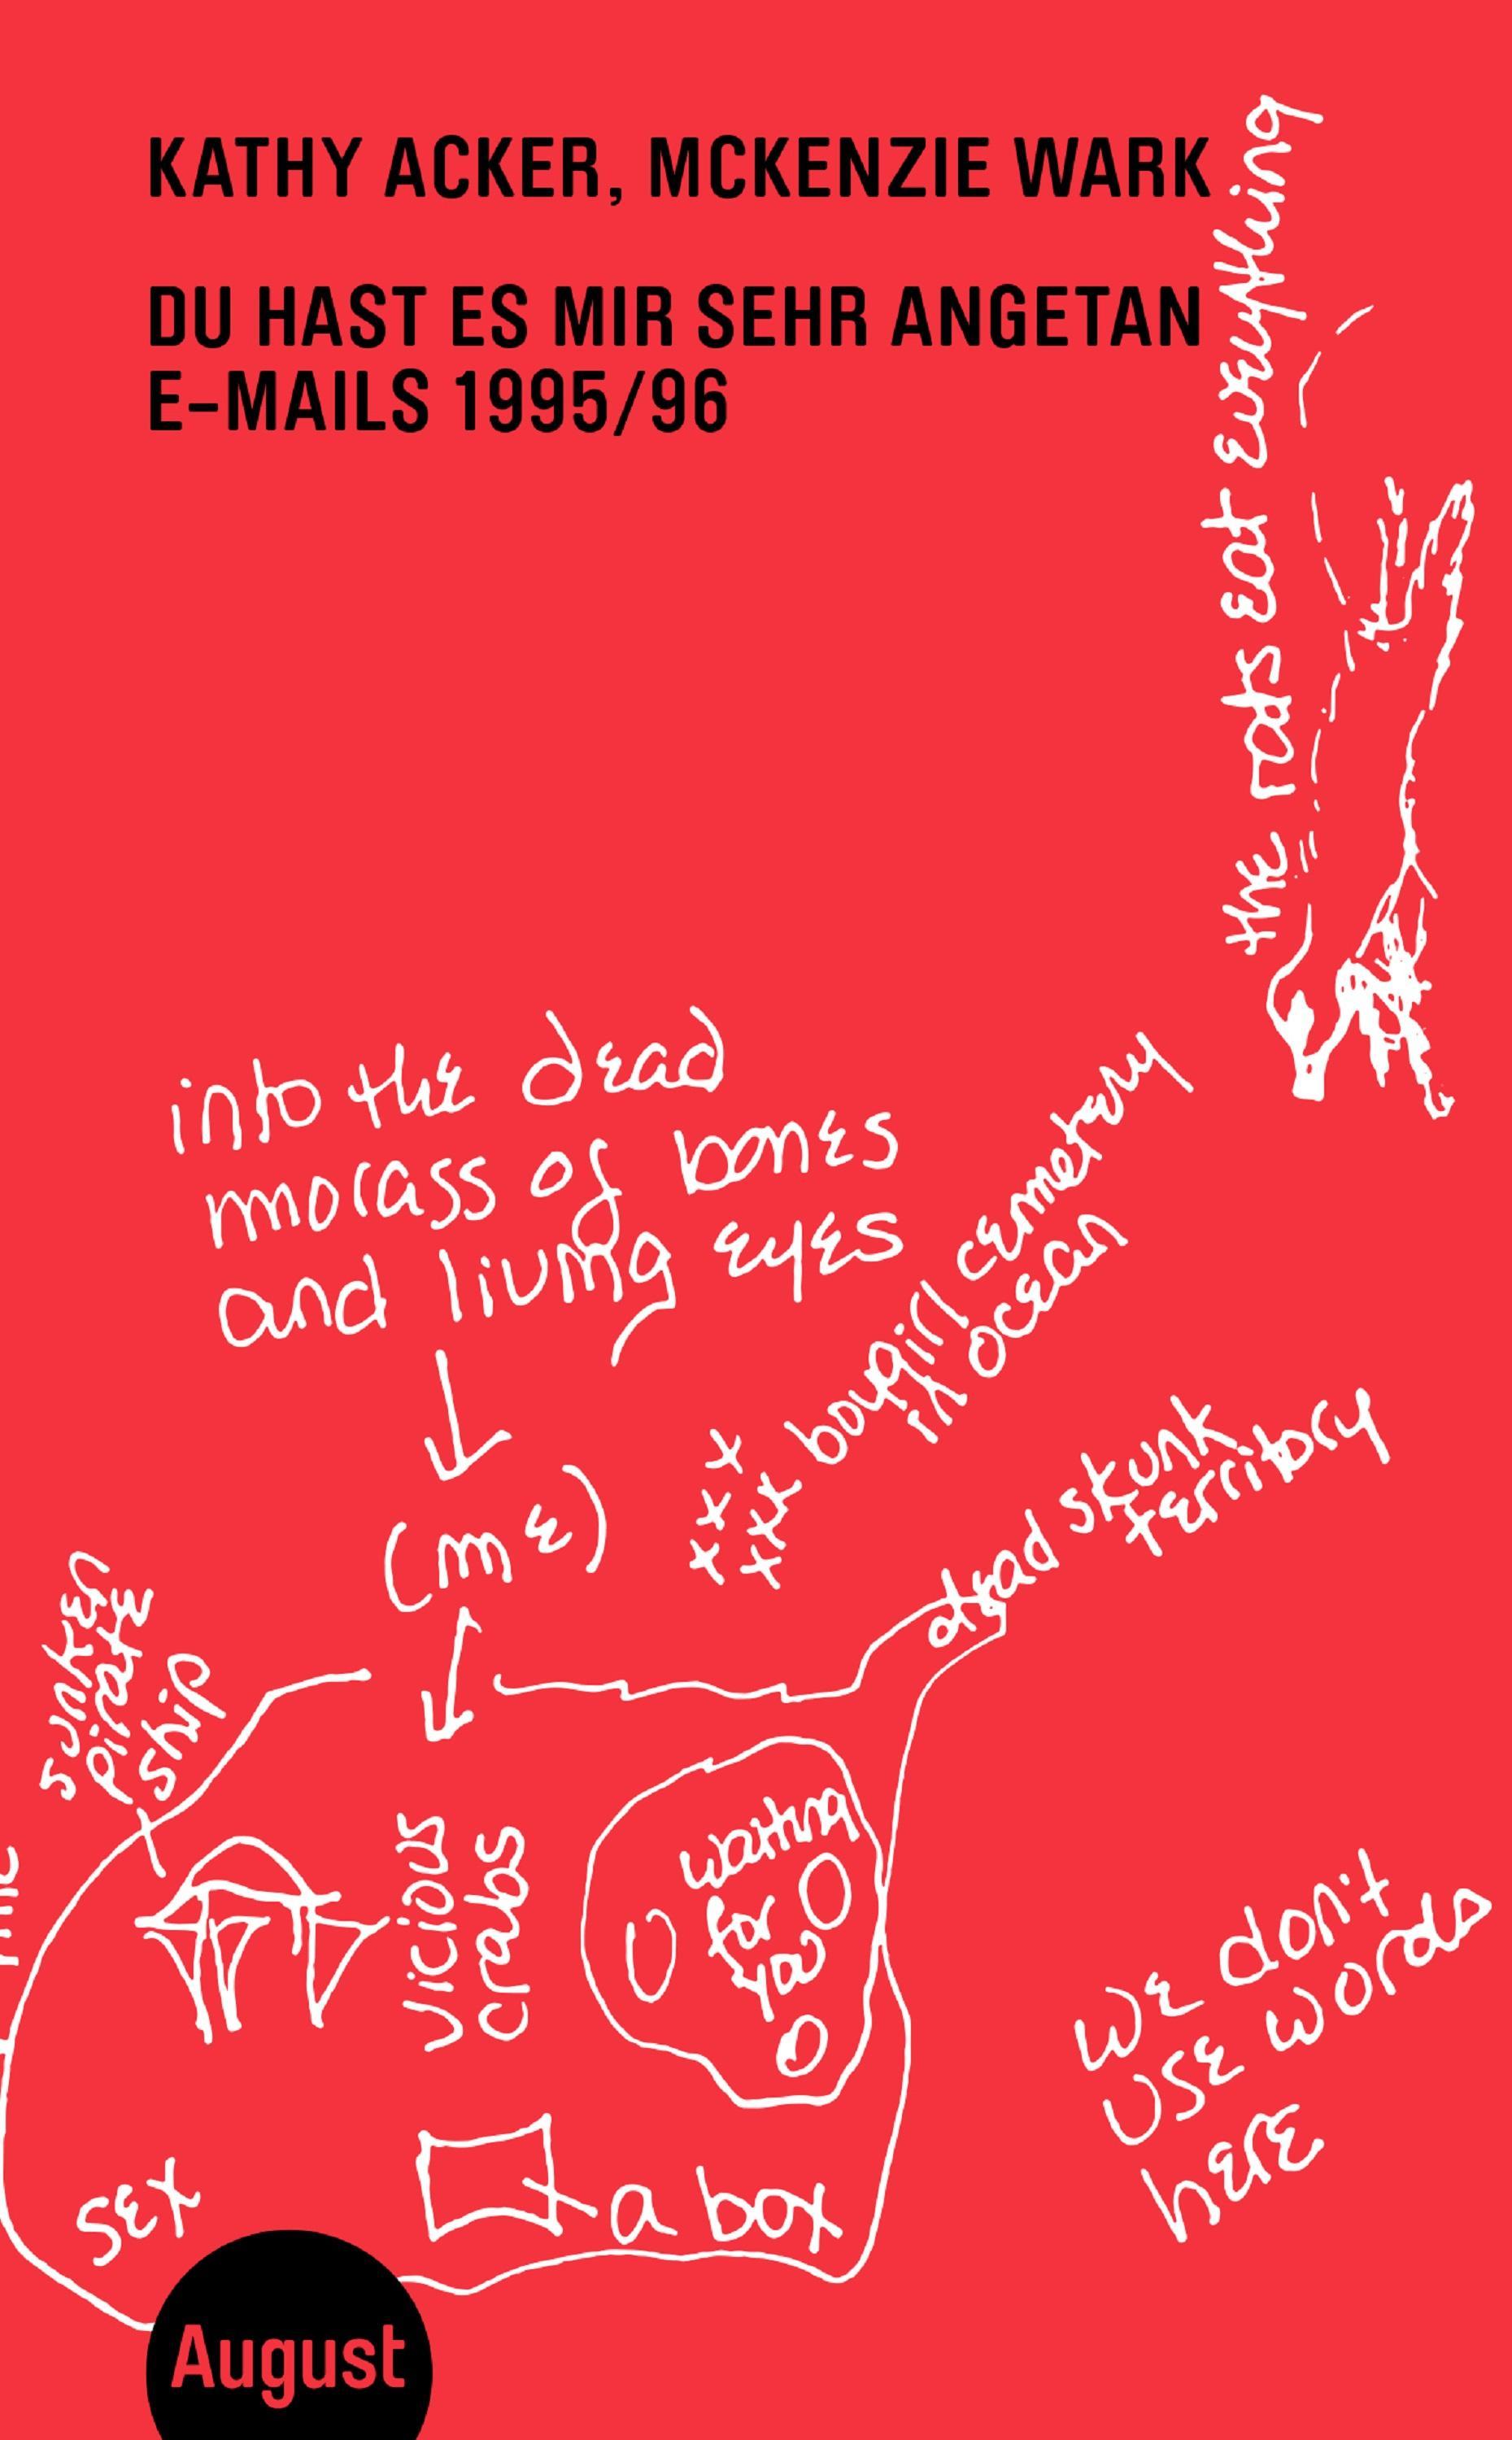 KATHY ACKER, MCKENZIE WARK
DU HAST ES MIR SEHR ANGETAN
E-MAILS 1995/96
the rats eat everything
into the dead
morass of bones
and living eyes
(me)
bought cemetery
ocean
dead stork
territory
sunken
pirate
ship
vicious
crabs
worm
we don't
use words
here
set
August